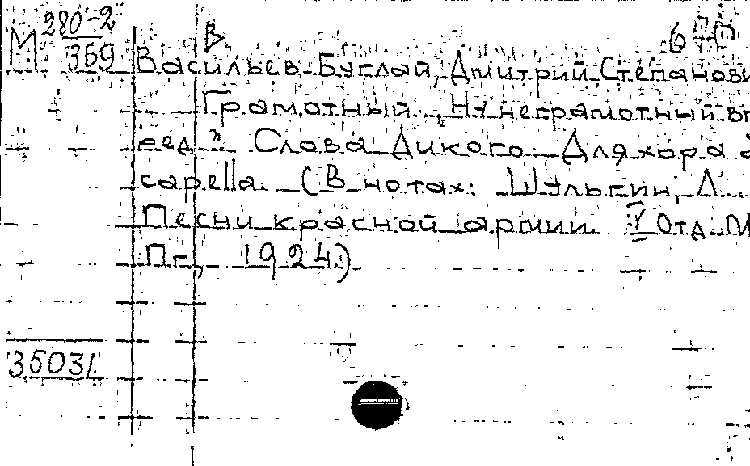 280-2 В 6
М 369 Васильев-Буглай, Дмитрий Степанови
Грамотный, Ну неграмотный вп
ред". Слова Дикого. Для хора а
capella. (В нотах: Шульгин, Л.
Песни красной армии. Отд. М
Пг., 1924.)
35031